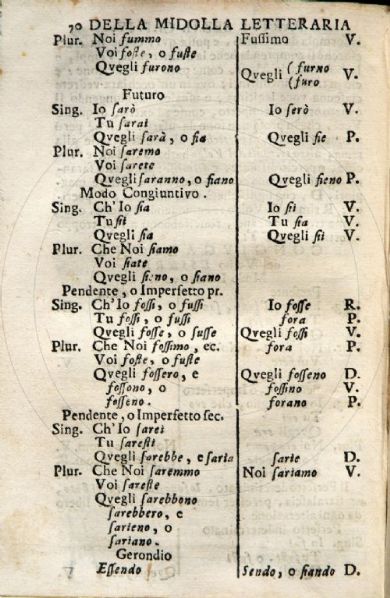 70 DELLA MIDOLLA LETTERARIA
Plur. Noi fummo Fussimo V.
Voi foste, o fuste
Qvegli furono Qvegli (furno V.
(furo
Futuro
Sing. Io sarò Io serò V.
Tu sarai
Qvegli sarà, o fia Qvegli fie P.
Plur. Noi saremo
Voi sarete
Qvegli saranno, o fiano Qvegli fieno P.
Modo Congiuntivo.
Sing. Ch' Io sia Io sii V.
Tu sii Tu sia V.
Qvegli sia Qvegli sii V.
Plur. Che Noi siamo
Voi siate
Qvegli sieno, o siano
Pendente, o Imperfetto pr.
Sing. Ch' Io fossi, o fussi Io fosse R.
Tu fossi, o fussi fora P.
Qvegli fosse, o fusse Qvegli fossi V.
Plur. Che Noi fossimo, ec. fora P.
Voi foste, o fuste
Qvegli fossero, e Qvegli fosseno D.
fossono, o fossino V.
fosseno. forano P.
Pendente, o Imperfetto sec.
Sing. Ch' Io sarei
Tu saresti
Qvegli sarebbe, e saria sarie D.
Plur. Che Noi saremmo Noi sariamo V.
Voi sareste
Qvegli sarebbono
sarebbero, e
sarieno, o
sariano.
Gerondio
Essendo Sendo, o siando D.